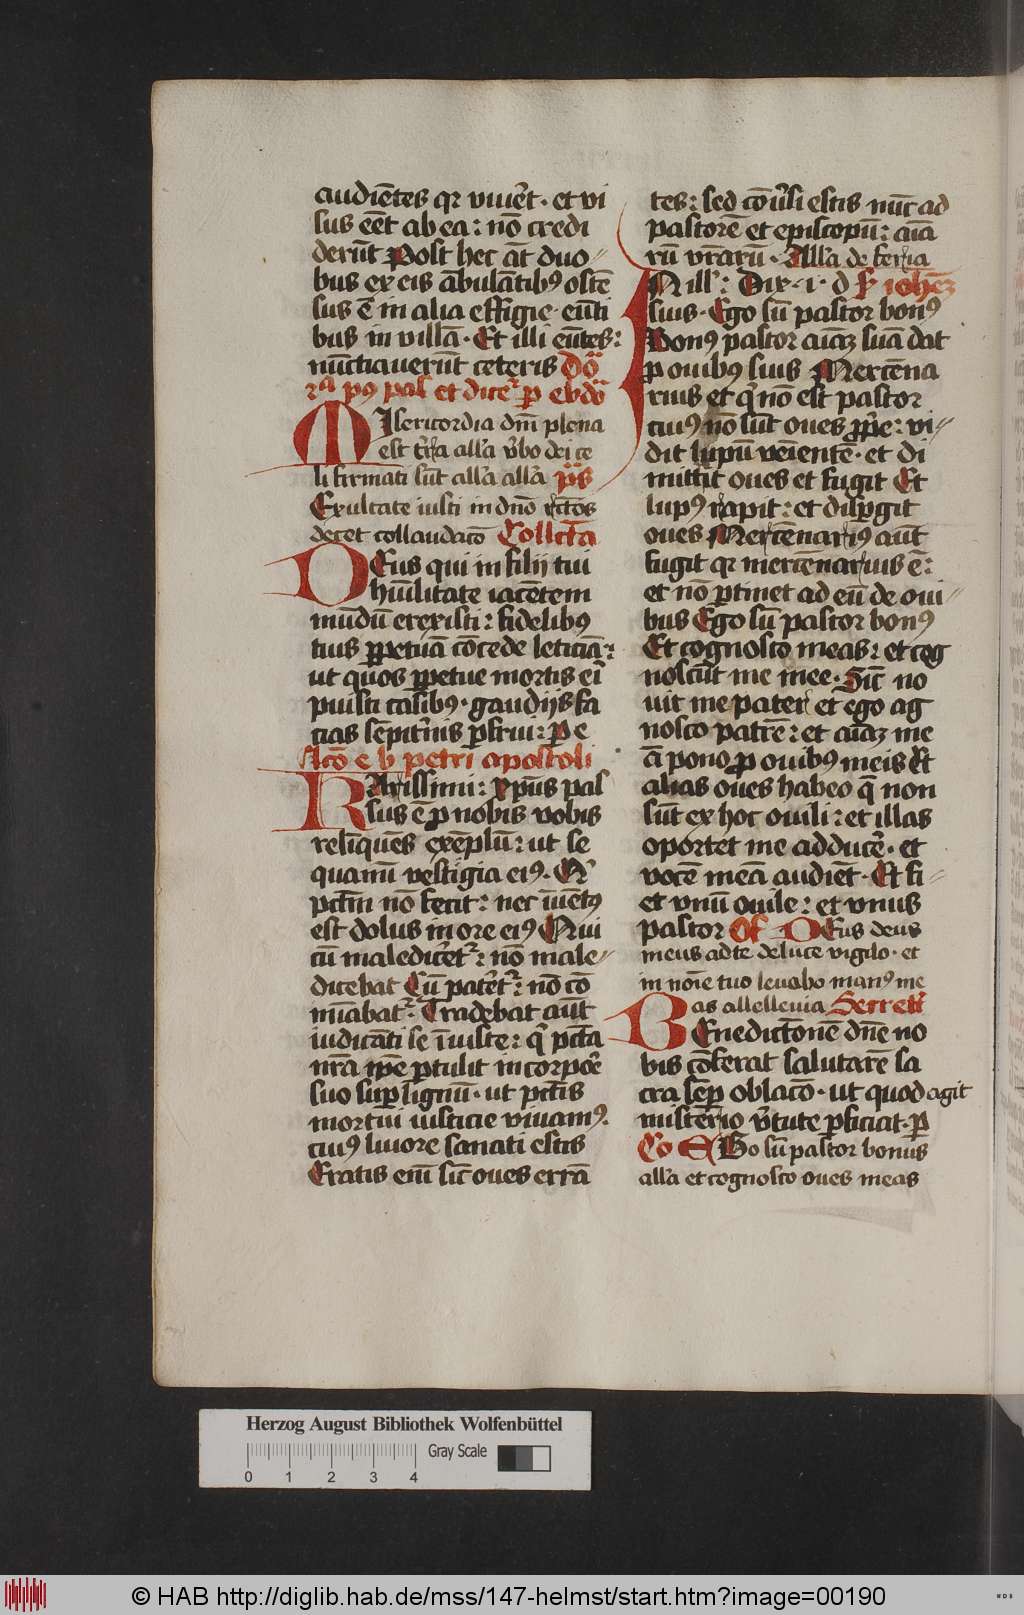 audie̅tes qr viuer̅t · et vi
sus ee̅t ab ea : no̅ credi
deru̅t Post hec a̅t duo
bus ex eis a̅bula̅tibꝰ oste̅
sus e̅ in alia effigie · eu̅ti
bus in villa̅ · Et illi eu̅tes :
nu̅ctiaueru̅t ceteris Do̅
ra̅ pꝰ pas et dicer̅ p ebdo̅
MIsericordia dn̅i plena
est tr̅ra all'a v̓bo dei ce
li firmati su̅t all'a all'a ps̅
Exultate iusti in dn̅o rc̅tos
decet collaudaco̅ Collc̅ta
DEus qui in filij tui
hu̅ilitate iace̅tem
mu̅du̅ erexisti : fidelibꝰ
tuis ꝑpetua̅ co̅cede leticia̅ :
ut quos ꝑpetue mortis ei̅
puisti casibꝰ · gaudijs fa
cias se̅pit̓nis ꝑfrui : P e
Lc̅o e b petri apostoli
KArissimi : xpu̅s pas
sus e̅ p nobis vobis
reli̅que̅s exe̅plu̅ : ut se
quami̅ vestigia eiꝰ · Q̅
pctm̅ no̅ fecit : nec i̅ue̅tꝰ
est dolus in ore eiꝰ Qui
cu̅ maledicet̓r : no̅ male
dicebat Cu̅ patet̓r : no̅ co̅
mi̅abatr̓ · Tradebat aut̅
iudica̅ti se i̅iuste : q̓ pc̅ta
nr̅a ip̅e ꝑtulit in corpor̓
suo suꝑ lignu̅ · ut pctis̅
mortui iusticie viuamꝰ ·
cuiꝰ liuore sanati estis
Eratis eni̅ sic̅ oues erra̅
tes : sed co̅u̓si estis nu̅c ad
pastore̅ et episcopu̅ : ai̅a
ru̅ vr̅aru̅ · All'a de feria
IN ill' : Dix · i · d f̓ iohe̅z
suis · Ego su̅ pastor bonꝰ
Bonꝰ pastor ai̅az sua̅ dat
p ouibꝰ suis Merce̅na
rius et q̓ no̅ est pastor
cuiꝰ no̅ su̅t oues ꝓp̓e : vi
dit lupu̅ veiente̅ · et di
mittit oues et fugit Et
lupꝰ rapit : et disꝑgit
oues Merce̅nariꝰ aut̅
fugit qr merce̅narius e̅ :
et no̅ ꝑtinet ad eu̅ de oui
bus Ego su̅ pastor bonꝰ
Et cognosco meas : et cog
noscu̅t me mee · Sic̅ no
uit me pater et ego ag
nosco patre̅ : et ai̅az me
a̅ pono p ouibꝰ meis Et
alias oues habeo q̅ non
su̅t ex hoc ouili : et illas
oportet me adduce̓ · et
voce̅ mea̅ audie̅t · Et fi
et vnu̅ ouile : et vnus
pastor Of DEus deus
meus ad te de luce vigilo · et
in no̅ie tuo leuabo manꝰ me
as allelleuia Secret̓
BEnedictone̅ dn̅e no
bis co̅ferat salutare̅ sa
cra se̅ꝑ oblaco̅ · ut quod agit
misterio v̓tute ꝑficiat · P
Co EGo su̅ pastor bonus
all'a et cognosco oues meas
Herzog August Bibliothek Wolfenbüttel
Gray Scale
0 1 2 3 4
© HAB http://diglib.hab.de/mss/147-helmst/start.htm?image=00190